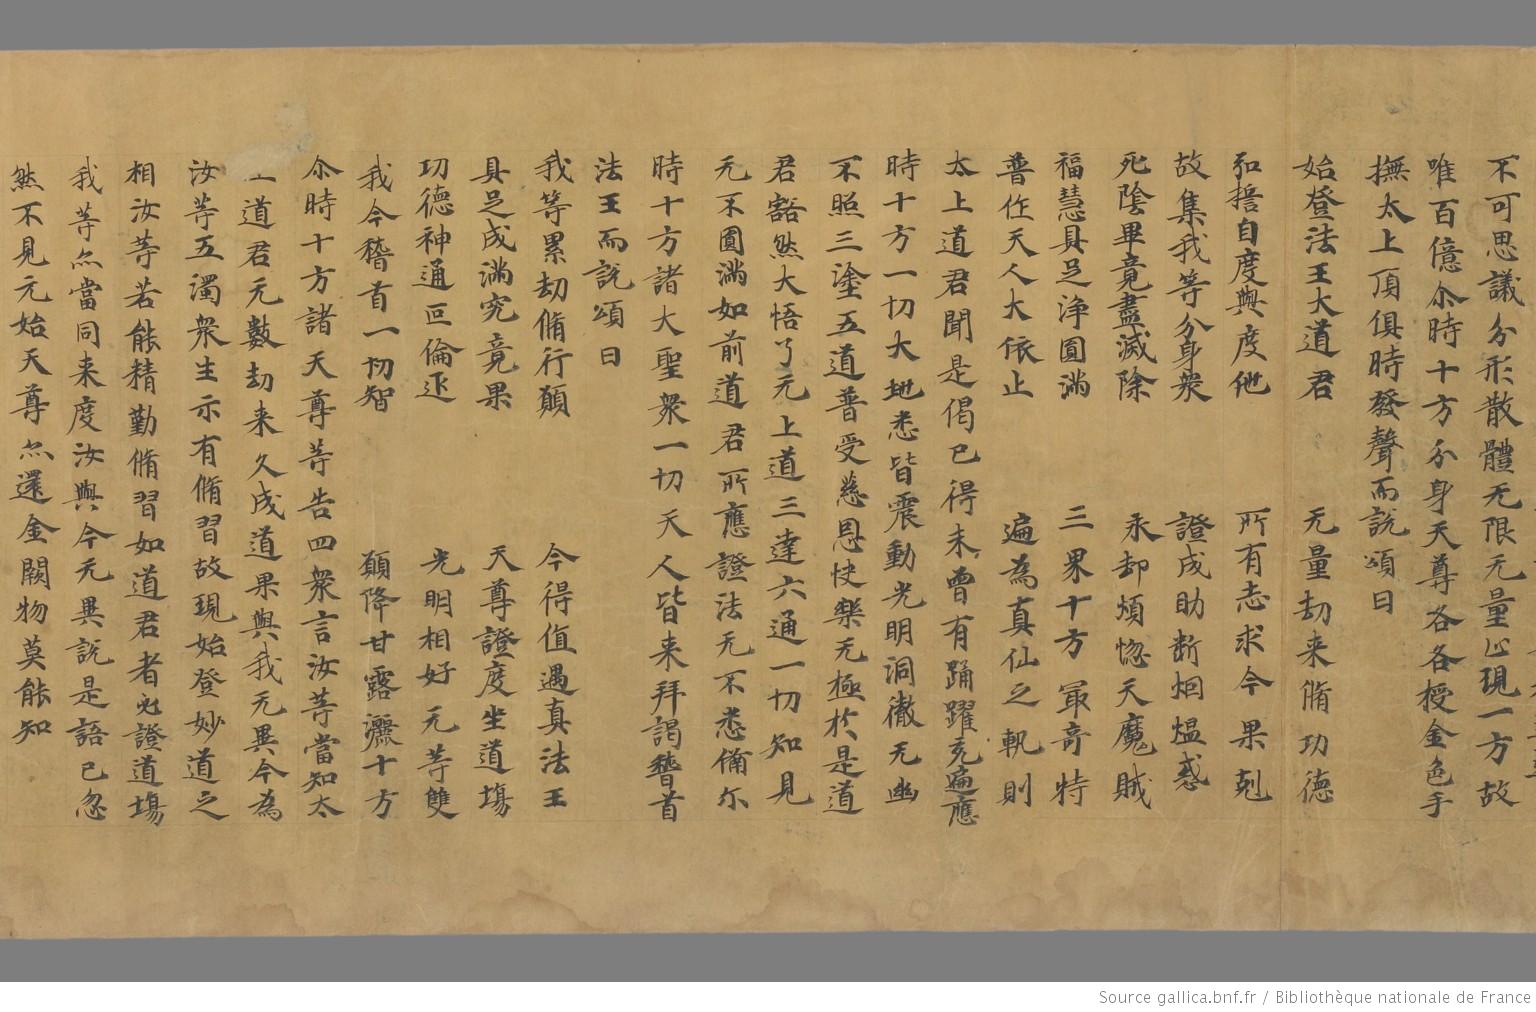 不可思議分形散體无限无量止現一方故
唯百億尒時十方分身天尊各各授金色手
撫太上頂俱時發聲而說頌曰
始登法王大道君 无量劫来脩功德
弘誓自度與度他 所有志求今果剋
故集我等分身衆 證成助断烟煴惑
死隂畢竟盡滅除 永却煩惱天魔賊
福慧具足浄圓滿 三界十方冣竒特
普作天人大依止 遍為真仙之軌則
太上道君聞是偈已得未曾有踊躍充遍應
時十方一切大地悉皆震動光明洞徹无幽
不照三塗五道普受慈恩快樂无極於是道
君豁然大悟了元上道三達六通一切知見
无不圓滿如前道君所應證法无不悉俻尓
時十方諸大聖衆一切天人皆来拜謁稽首
法王而說頌曰
我等累劫脩行願 今得值遇真法王
具足成滿究竟果 天尊證度坐道塲
功德神通叵倫匹 光明相好无等雙
我今稽首一切智 願降甘露灑十方
尒時十方諸天尊等告四衆言汝等當知太
道君无數劫来久成道果與我无異今為
汝等五濁衆生示有脩習故現始登妙道之
相汝等若能精勤脩習如道君者必證道塲
我等亦當同来度汝與今无異說是語已忽
然不見元始天尊亦還金闕物莫能知
Source gallica.bnf.fr / Bibliothèque nationale de France